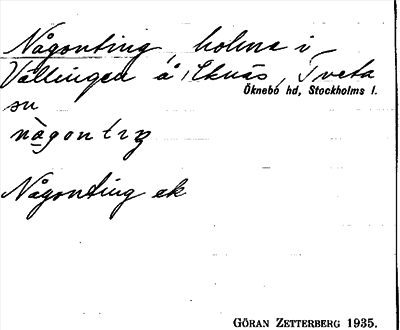 Någonting, holme i
Vällingen å Eknäs, Tveta
Öknebo hd, Stockholms l.
sn
någontıŋ
Någonting ek
GÖRAN ZETTERBERG 1935.